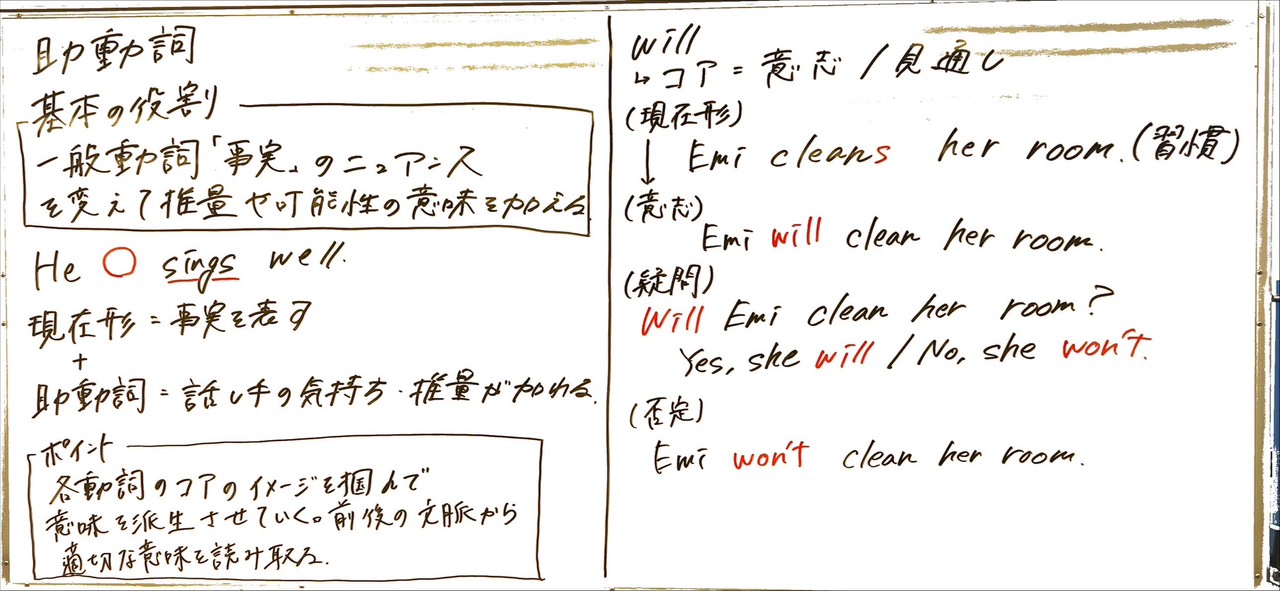 助動詞
基本の役割
一般動詞「事実」のニュアンス
を変えて推量や可能性の意味を加える
He ○ sings well.
現在形=事実を表す
+
助動詞=話し手の気持ち・推量が加わる.
ポイント
各動詞のコアのイメージを掴んで
意味を派生させていく。前後の文脈から
適切な意味を読み取る.
will
↳コア=意志/見通し
(現在形)
↓ Emi cleans her room.(習慣)
(意志)
Emi will clean her room.
(疑問)
Will Emi clean her room?
Yes, she will / No, she won't.
(否定)
Emi won't clean her room.